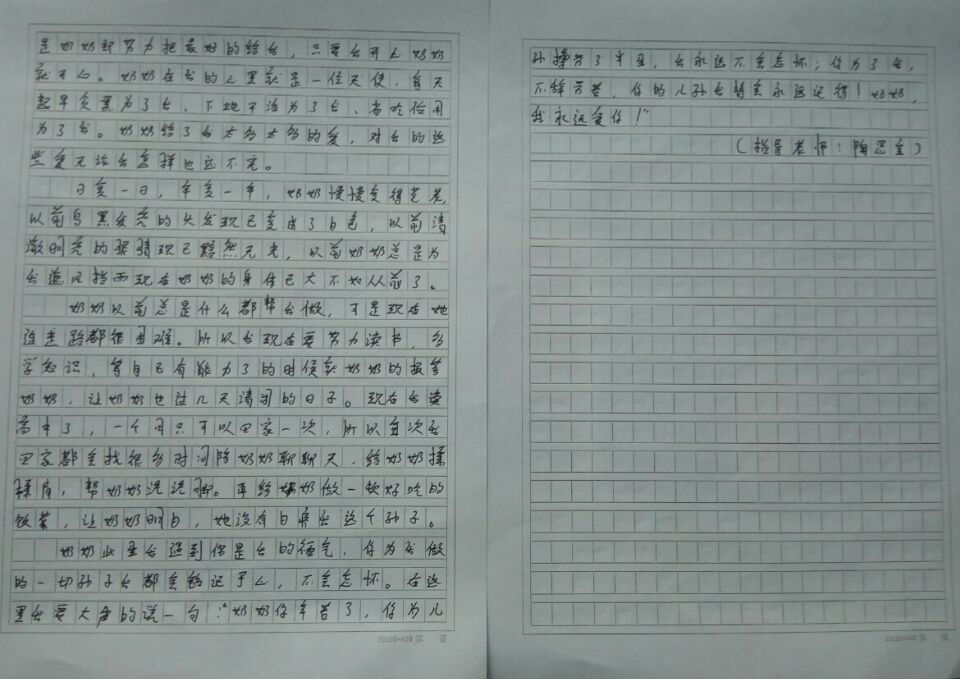 是奶奶却努力把最好的给我，只要我开心奶奶
就开心。奶奶在我的心里就是一位天使，每天
起早贪黑为了我、下地干活为了我、省吃俭用
为了我。奶奶给了我太多太多的爱，对我的这
些爱无论我怎样也还不完。
日复一日，年复一年，奶奶慢慢变得苍老，
以前乌黑发亮的头发现已变成了白色，以前清
澈明亮的眼睛现已黯然无光，以前奶奶总是为
我遮风挡雨现在奶奶的身体已大不如从前了。
奶奶以前总是什么都帮我做，可是现在她
连走路都很困难。所以我现在要努力读书，多
学知识，等自己有能力了的时候就奶奶的报答
奶奶，让奶奶也过几天清闲的日子。现在我读
高中了，一个月只可以回家一次，所以每次我
回家都会找很多时间陪奶奶聊聊天，给奶奶揉
揉肩，帮奶奶洗洗脚。再给奶奶做一顿好吃的
饭菜，让奶奶明白，她没有白疼我这个孙子。
奶奶此生我遇到你是我的福气，你为我做
的一切孙子我都会铭记于心，不会忘怀。在这
里我要大声的说一句："奶奶你辛苦了，你为儿
孙操劳了半生，我永远不会忘怀；你为了我，
不辞劳苦，你的儿孙我将会永远记得！奶奶，
我永远爱你！"
（指导老师：陶 ）
20×20=400 第 页
20×20=400 第 页